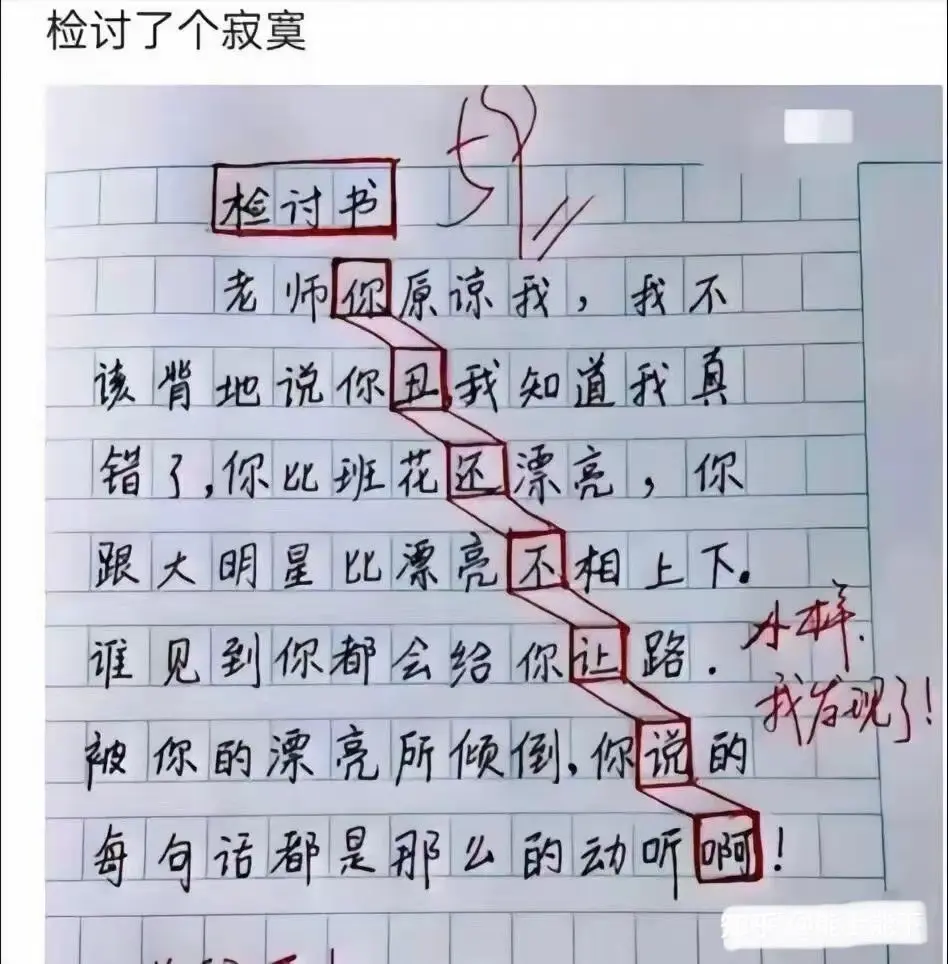 检讨了个寂寞
检讨书
老师你原谅我，我不
该背地说你丑,我知道我真
错了,你比班花还漂亮，你
跟大明星比漂亮不相上下。
谁见到你都会给你让路.
被你的漂亮所倾倒,你说的
每句话都是那么的动听啊！
小样.
我发现了！